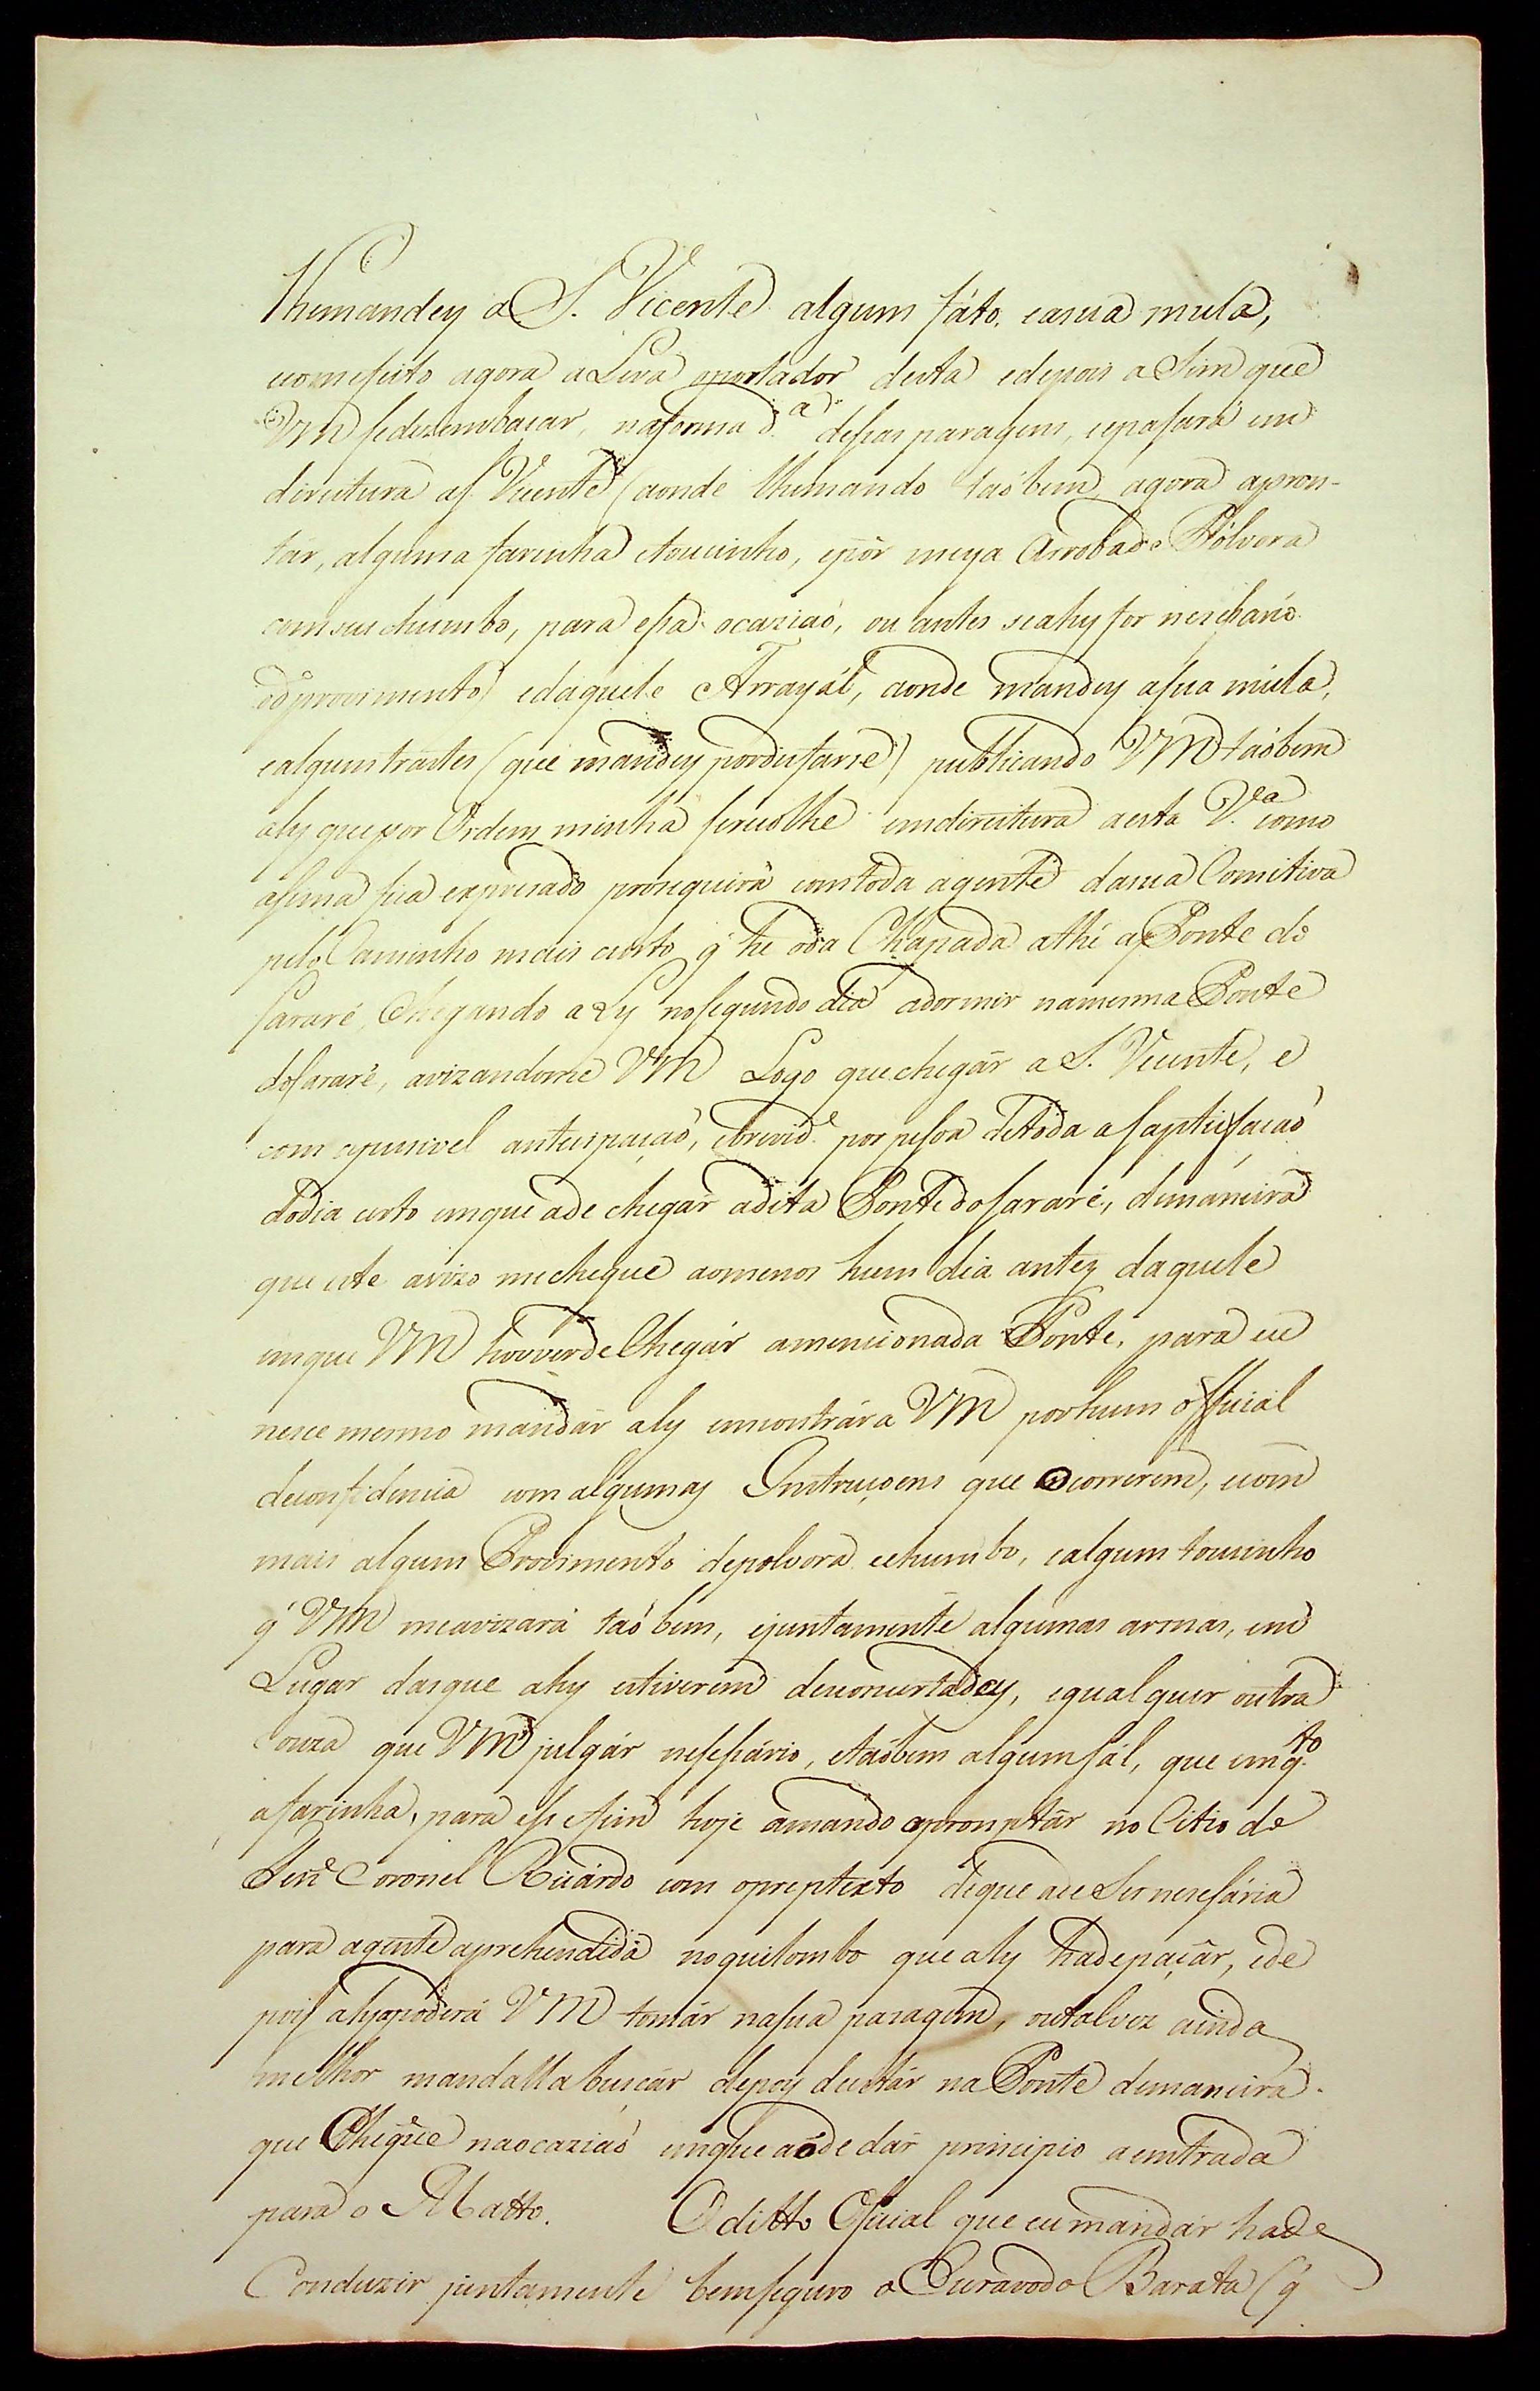 lhemandey a S. Vicente algum fáto, easua mula,
ecomefeito agora aLeva oportador desta edepois aSim que
VM sedezembaraçar, naforma d.ª dessas paragens, sepasará em
direitura aS. Vicente (aonde lhemando taóbem agora apron-
tár, alguma farinha etoucinho, epór meya Arroba de Pólvora
comseu chumbo, para essa ocaziaó, ou antes seahy for nescesário
provimento) edaquele Arrayál, aonde mandey asua múla,
ealgunstrastes (que mandey pordisfarse) publicando VM taóbem
aly quepor Ordem minha serecolhe emdireitura aesta V.ª como
asima fica expresado proseguirá comtoda agente dasua Comitiva
pelo Caminho mais curto q' he oda Chapada athé a Ponte do
Sararé, Chegando aLy nosegundo dia adormir namesma Ponte
doSararé, avizandome VM Logo quechegár a S. Vicente, e
com aposivel antecipaçaó, ebrevid.e por pesoa detoda asaptisfaçaó
dodia certo emque ade chegar adita Ponte doSararé, demaneira
que este avizo mechegue aomenos hum dia antez daquele
emque VM houverde Chegár amencionada Ponte, para eu
nesce mesmo mandár aly emcontrár a VM porhum official
deconfidencia com algumas Instruçoens que ocorrerem, ecom
mais algum Provimento depolvora echumbo, ealgum toucinho
q' VM meavizará taó bem, ejuntamente algumas armas, em
Lugar dasque ahy estiverem desconcertadas, equalquer outra
couza que VM julgár nesesário, etaóbem algumsál, que emq.to
afarinha, para esse fim hoje amando apromptár no Citio do
Ten.e Coronel Ricárdo com opreptexto deque ade Sernesesária
para agente aprehendida noquilombo que aly hadepaçár, ede
pois ahy apoderá VM tomár nasua pasagem, outalvez ainda
melhor mandalla buscár depoy deestár na Ponte demaneira
que Chegue naocaziaó emque aóde dar principio aemtrada
para o Matto. O ditto Oficial que eu mandár hade
Conduzir juntamente bemseguro o Escravo do Barata (q'